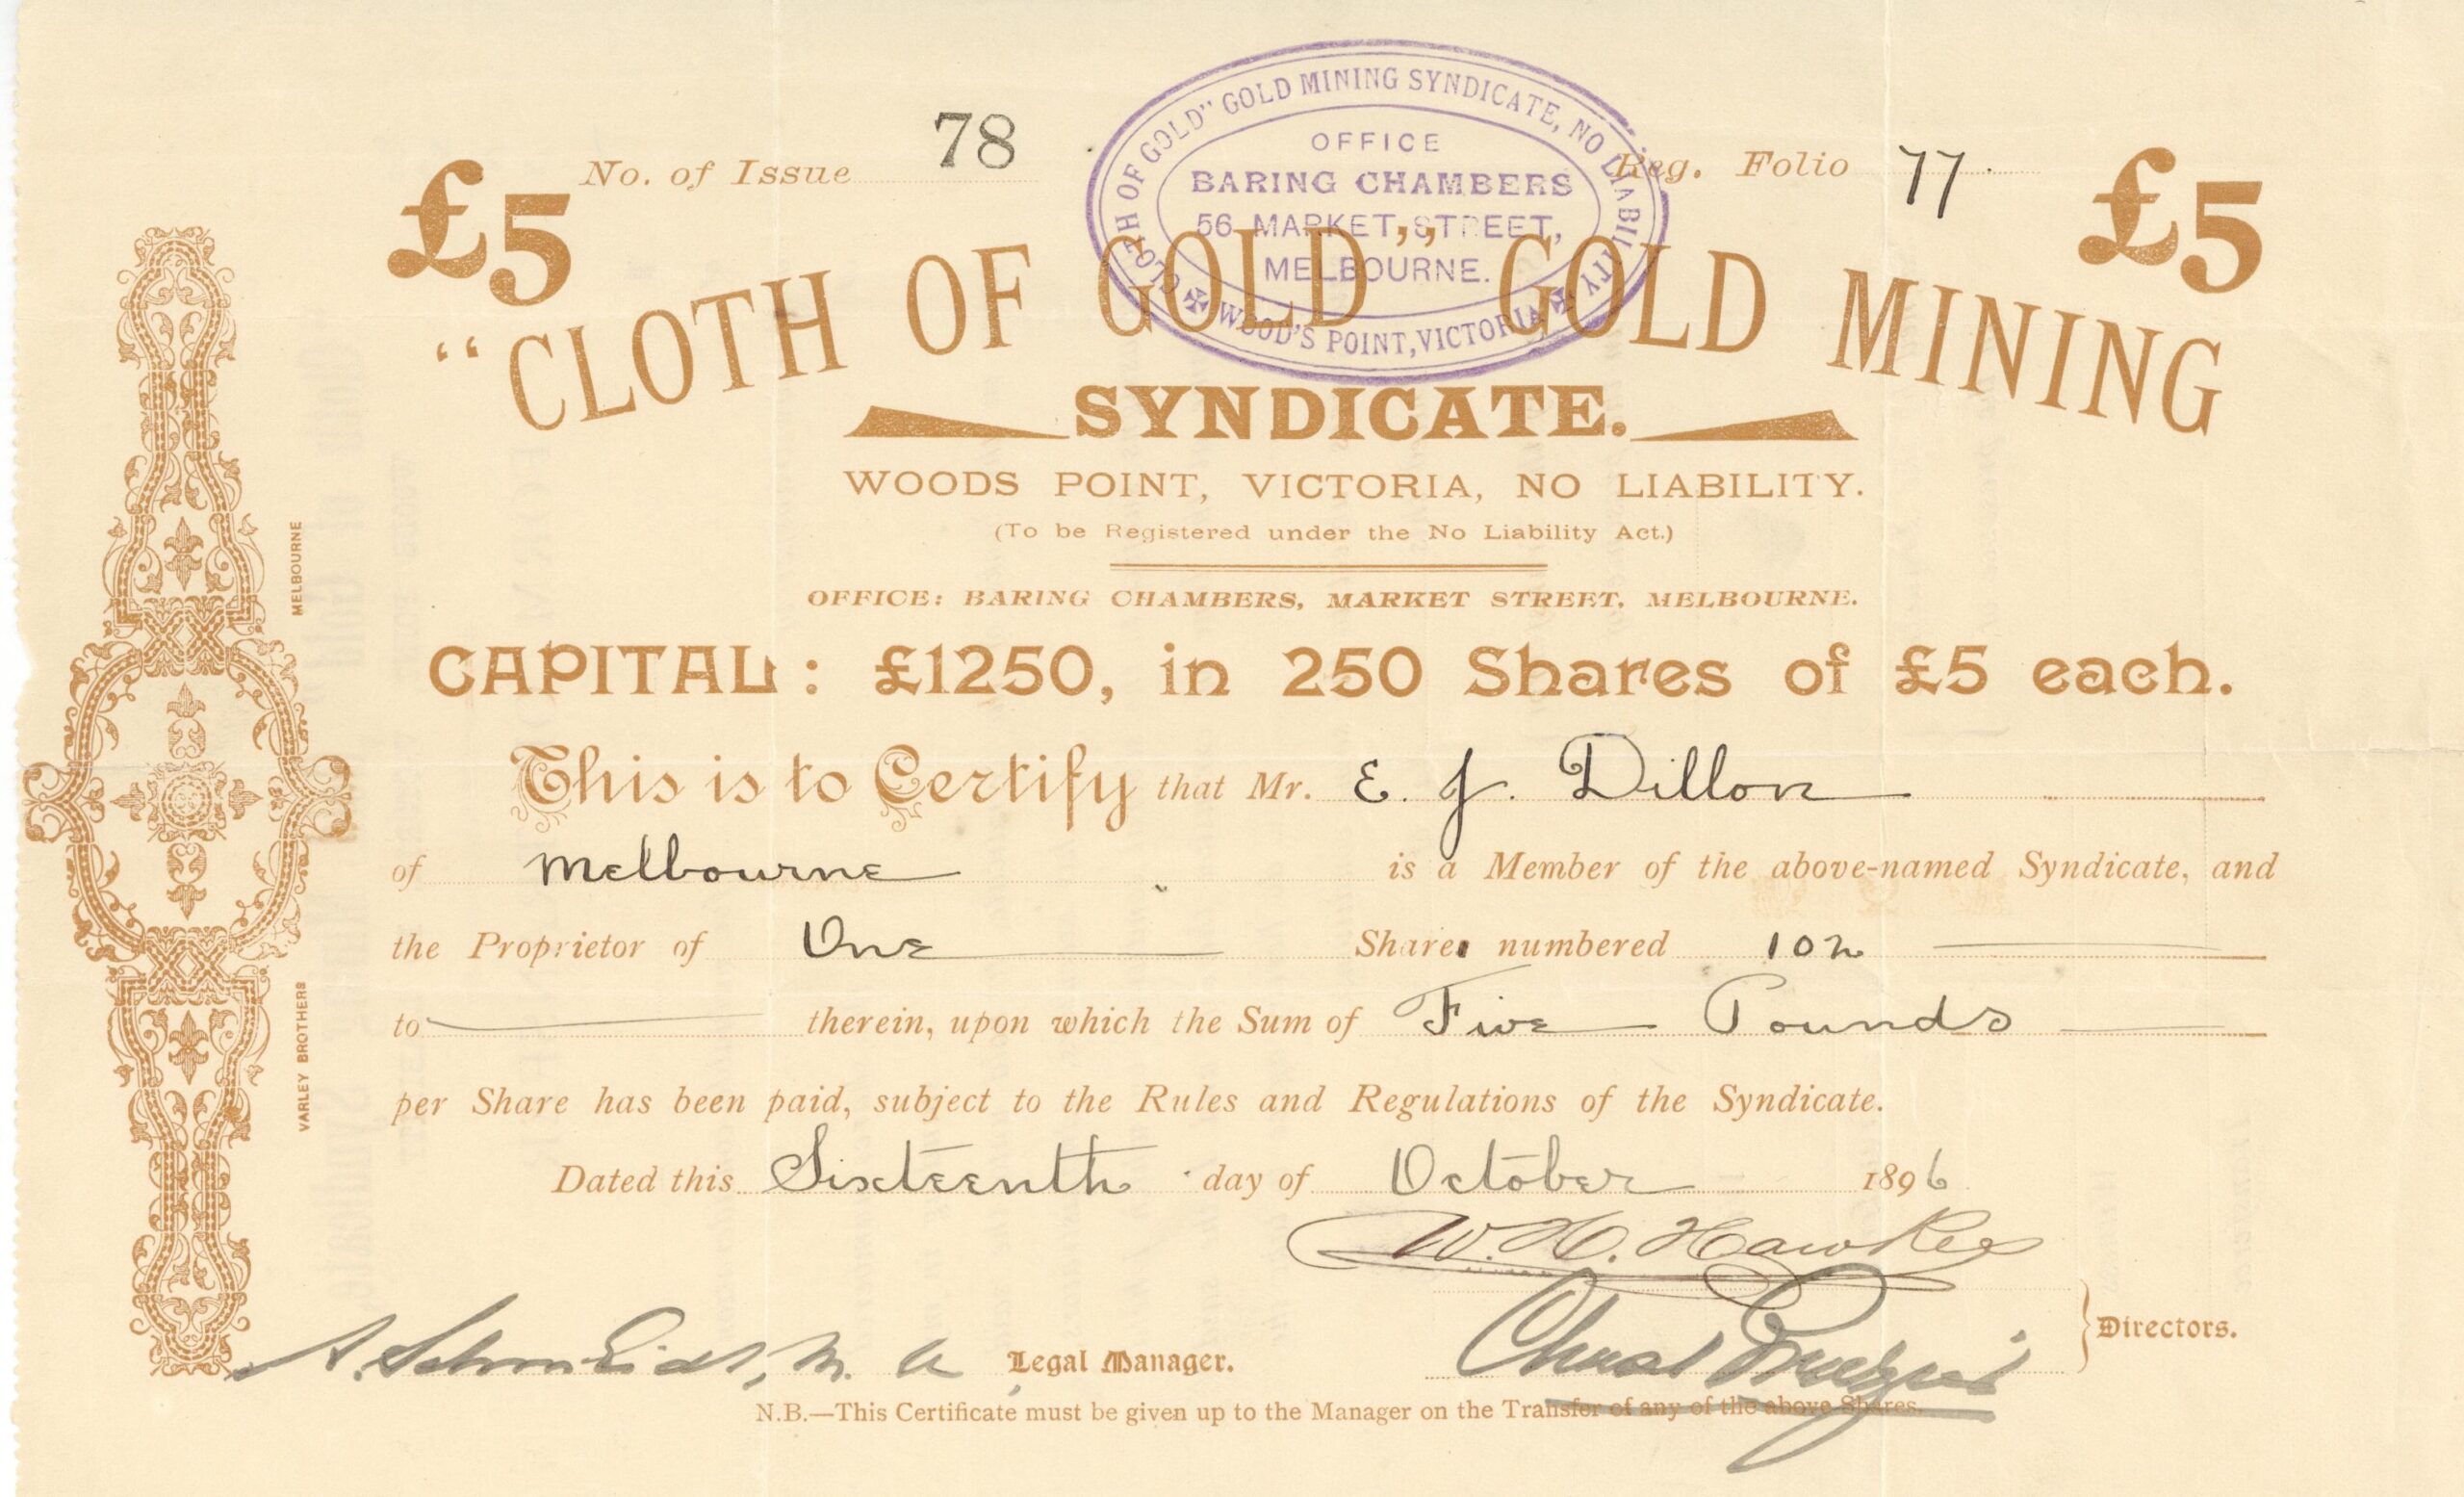 "CLOTH OF GOLD" GOLD MINING SYNDICATE, NO LIABILITY
OFFICE
BARING CHAMBERS
56 MARKET STREET,
MELBOURNE.
WOOD'S POINT, VICTORIA
£5 No. of Issue 78 Reg. Folio 77 £5
"CLOTH OF GOLD" GOLD MINING
SYNDICATE.
WOODS POINT, VICTORIA, NO LIABILITY.
(To be Registered under the No Liability Act.)
OFFICE: BARING CHAMBERS, MARKET STREET, MELBOURNE.
CAPITAL: £1250, in 250 Shares of £5 each.
This is to Certify that Mr. E. J. Dillon
of Melbourne is a Member of the above-named Syndicate, and
the Proprietor of One Share numbered 102
to therein, upon which the Sum of Five Pounds
per Share has been paid, subject to the Rules and Regulations of the Syndicate.
Dated this Sixteenth day of October 1896
W. H. Hawkes
Directors.
A. Schmeidt, M. A Legal Manager.
N.B.—This Certificate must be given up to the Manager on the Transfer of any of the above Shares.
MELBOURNE
VARLEY BROTHERS